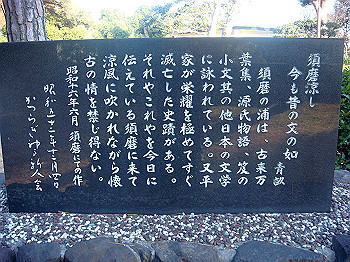 須磨涼し
今も昔の文の如
青畝
須磨の浦は、古来万
葉集、源氏物語、笈の
小文其の他日本の文学
に詠われている。又平
家が栄耀を極めてすぐ
滅亡した史蹟がある。
それやこれやを今日に
伝えている須磨に来て
涼風に吹かれながら懐
古の情を禁じ得ない。
昭和十六年六月 須磨にての作
昭和五十二年十二月四日
かつらぎゆうゆう会